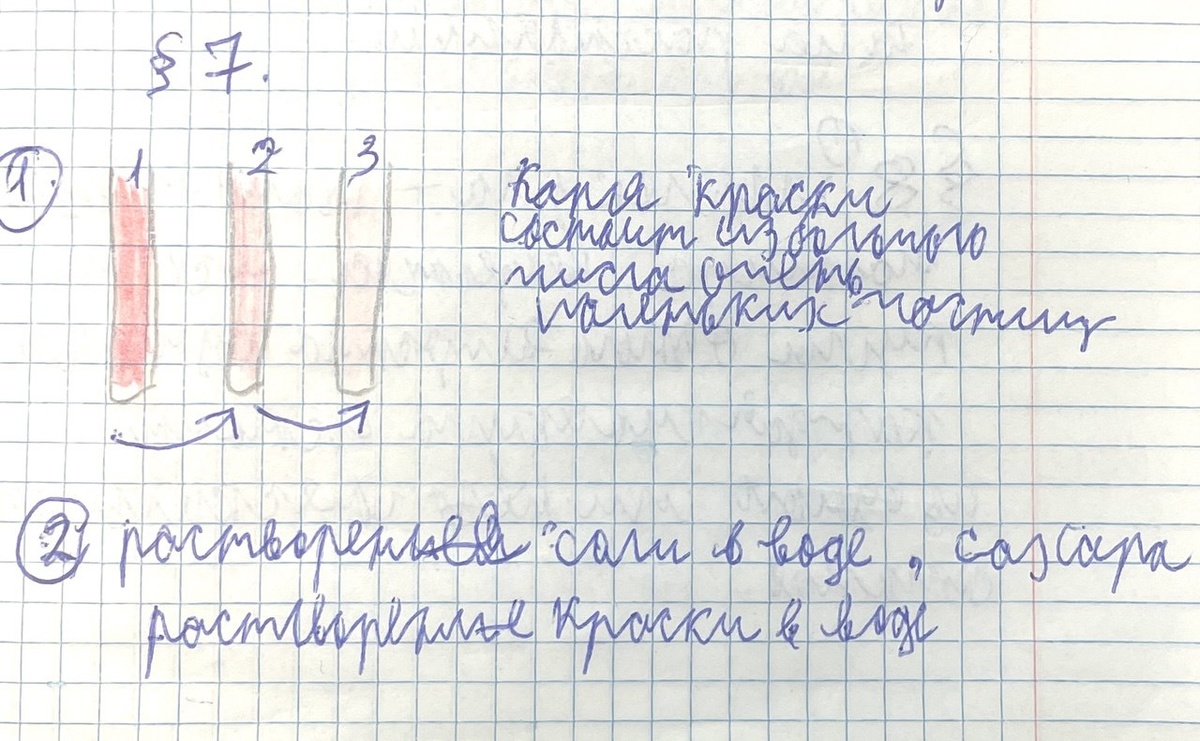 § 7.
1. 1 2 3
Капля краски
состоит из большого
числа очень
маленьких частиц
2) растворение соли в воде, сахара
растворение краски в воде